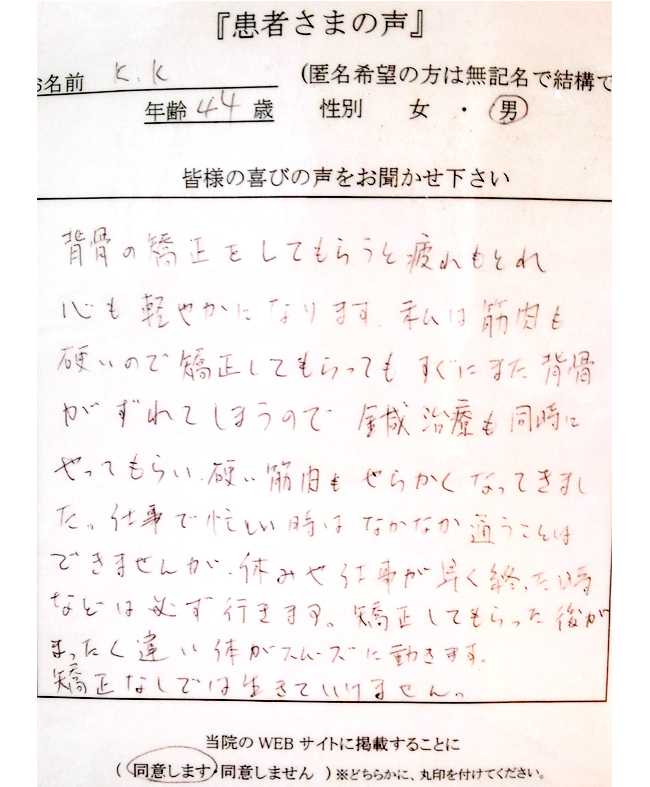 『患者さまの声』
お名前 K.K (匿名希望の方は無記名で結構で
年齢 44 歳 性別 女 ・ 男
皆様の喜びの声をお聞かせ下さい
背骨の矯正をしてもらうと疲れもとれ
心も軽やかになります。私は筋肉も
硬いので矯正してもらってもすぐにまた背骨
がずれてしまうので鍼治療も同時に
やってもらい、硬い筋肉もやらかくなってきまし
た。仕事で忙しい時はなかなか通うことは
できませんが、休みや仕事が早く終った時
などは必ず行きます。矯正してもらった後が
まったく違い体がスムーズに動きます。
矯正なしでは生きていけません。
当院の WEB サイトに掲載することに
( 同意します・同意しません ) ※どちらかに、丸印を付けてください。